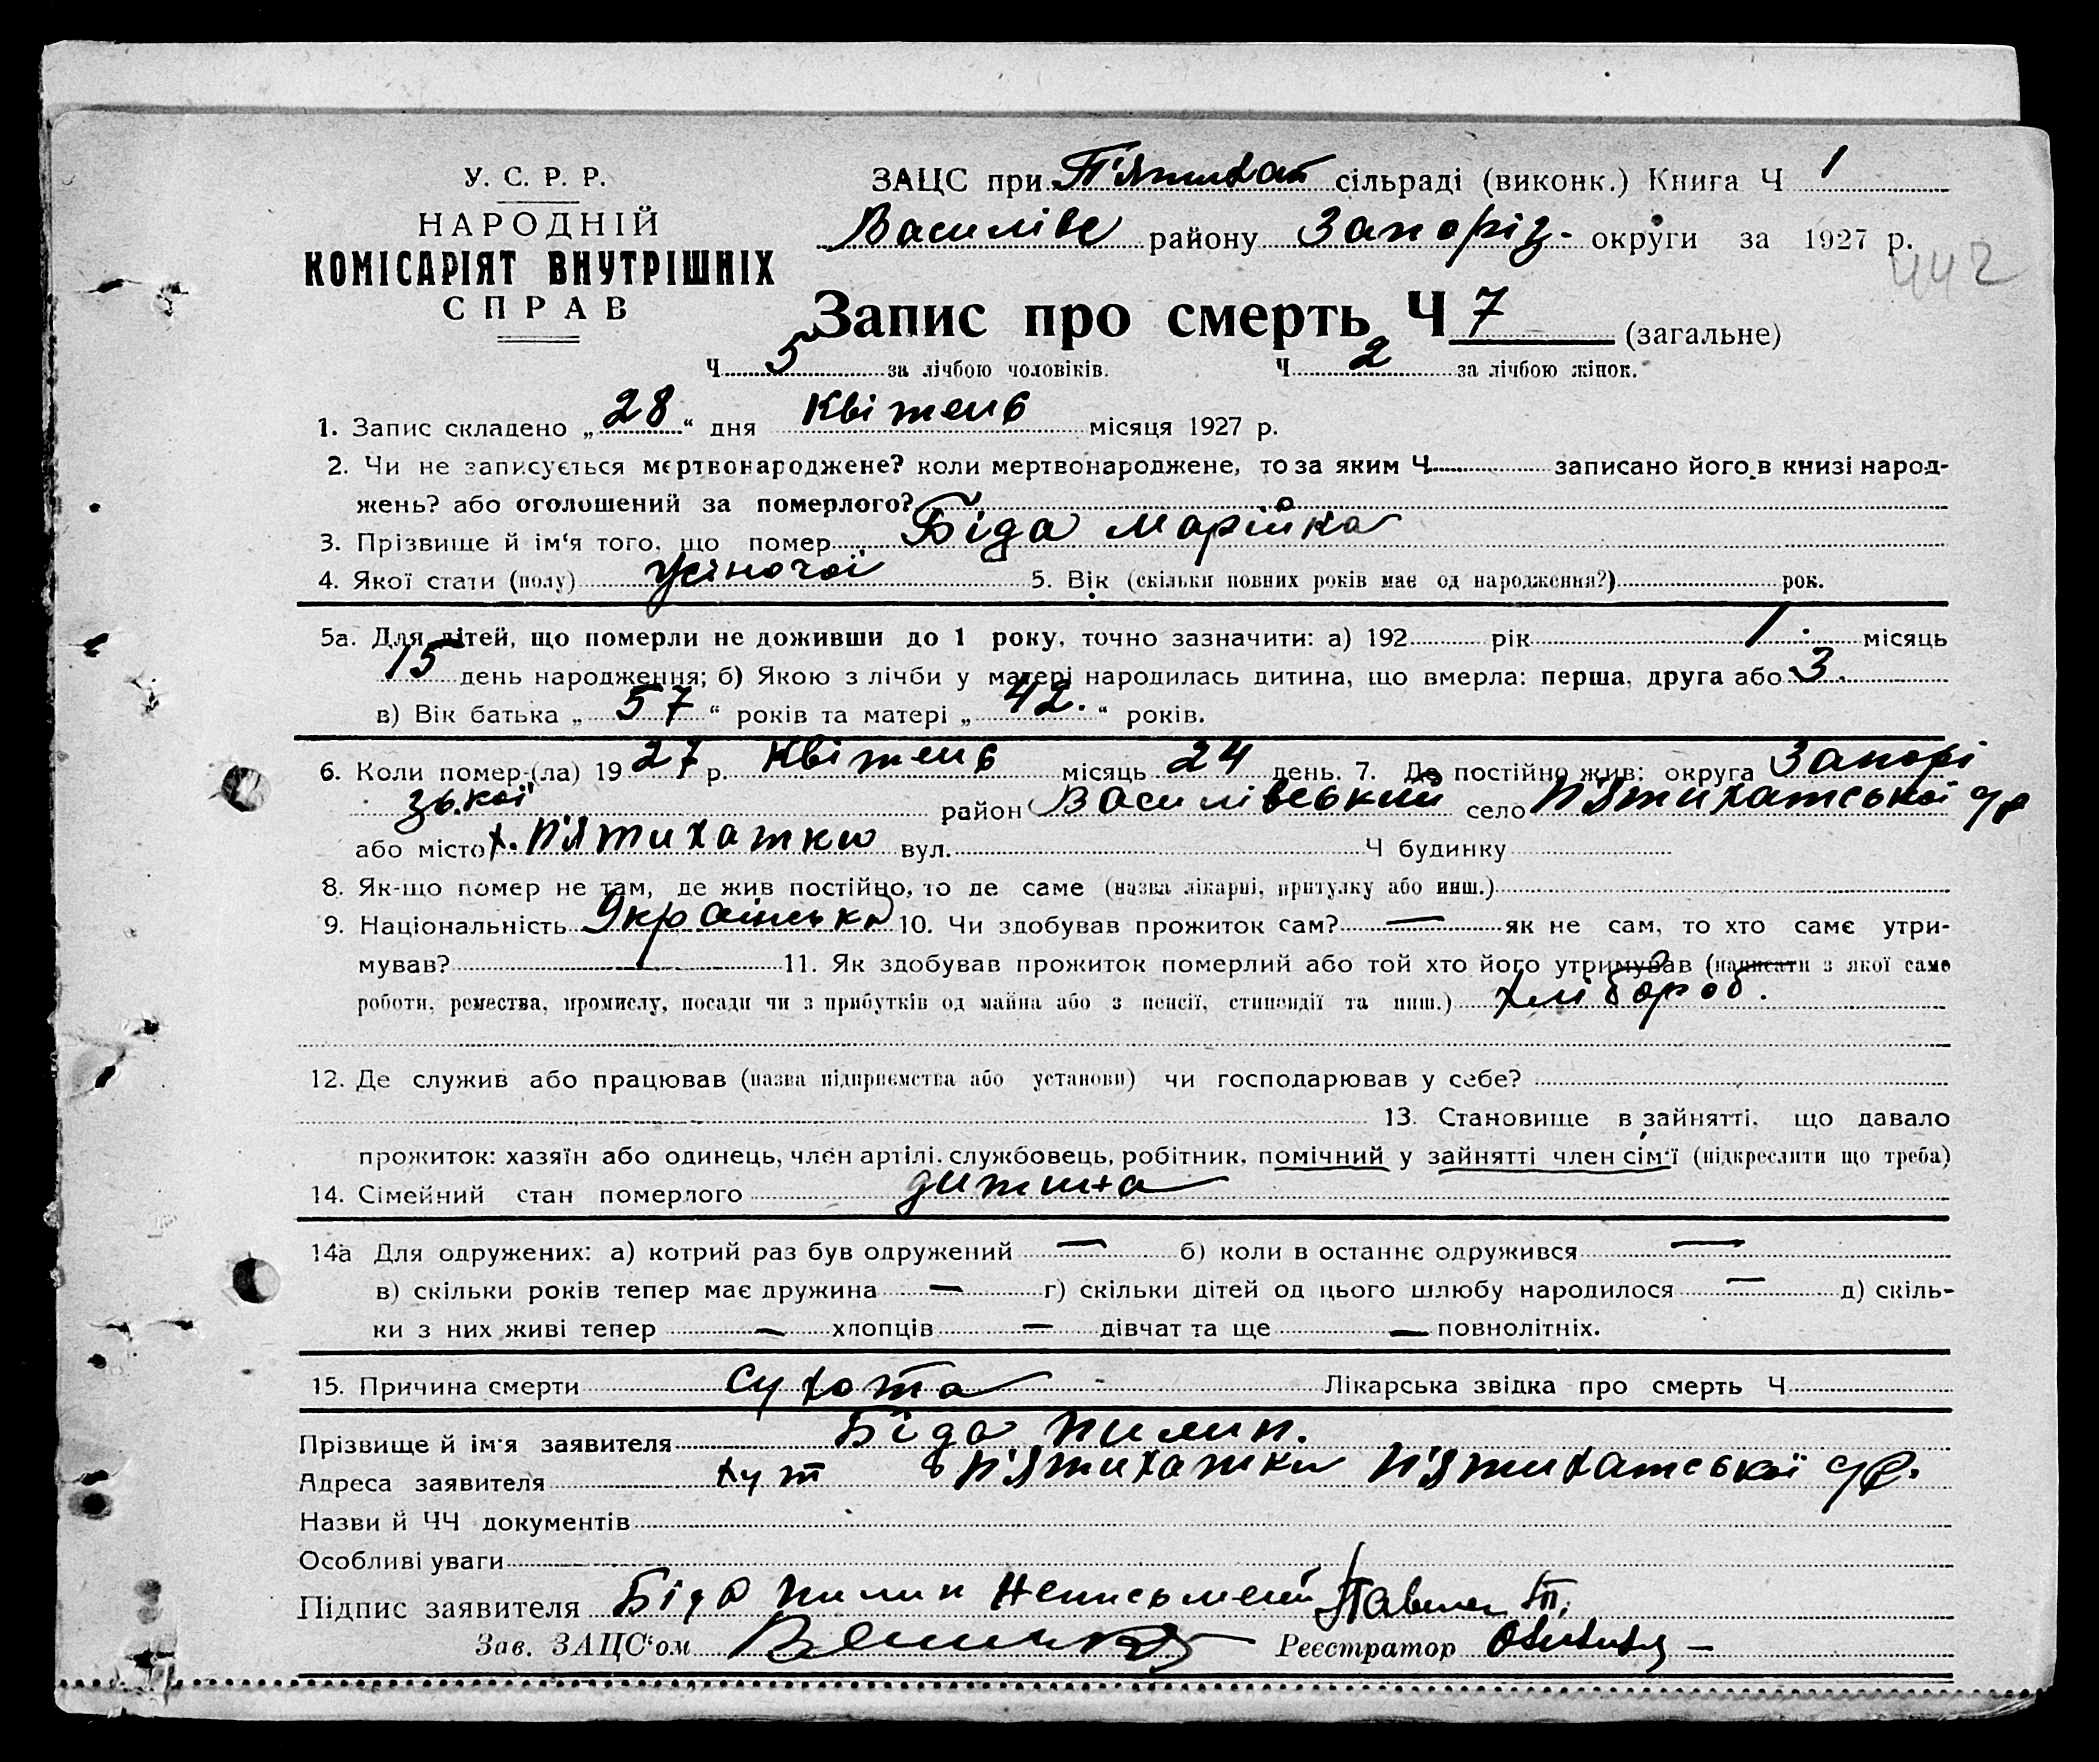 У. С. Р. Р.
НАРОДНІЙ
КОМІСАРІЯТ ВНУТРІШНІХ
СПРАВ
ЗАЦС при П'ятихат сільраді (виконк.) Книга Ч 1
Василівс району Запоріз. округи за 1927 р.
442
Запис про смерть Ч 7 (загальне)
Ч 5 за лічбою чоловіків. Ч 2 за лічбою жінок.
1. Запис складено „ 28 “ дня Квітень місяця 1927 р.
2. Чи не записується мертвонароджене? коли мертвонароджене, то за яким Ч записано його в книзі народ-
жень? або оголошений за померлого?
3. Прізвище й ім'я того, що помер Біда Марійка
4. Якої стати (полу) Жіночої 5. Вік (скільки повних років має од народження?) рок.
5а. Для дітей, що померли не доживши до 1 року, точно зазначити: а) 192 рік 1 місяць
15 день народження; б) Якою з лічби у матері народилась дитина, що вмерла: перша, друга або 3.
в) Вік батька „ 57 “ років та матері „ 42. “ років.
6. Коли помер-(ла) 1927 р. Квітень місяць 24 день. 7. Де постійно жив: округа Запорі
зької район Василівський село П'ятихатської с/р
або місто х. П'ятихатки вул. Ч будинку
8. Як-що помер не там, де жив постійно, то де саме (назва лікарні, притулку або инш.)
9. Національність Українська 10. Чи здобував прожиток сам? — як не сам, то хто саме утри-
мував? 11. Як здобував прожиток померлий або той хто його утримував (написати з якої саме
роботи, ремества, промислу, посади чи з прибутків од майна або з пенсії, стипендії та инш.) хлібороб.
12. Де служив або працював (назва підприємства або установи) чи господарював у себе?
13. Становище в зайнятті, що давало
прожиток: хазяїн або одинець, член артілі, службовець, робітник, помічний у зайнятті член сім'ї (підкреслити що треба)
14. Сімейний стан померлого дитина
14а Для одружених: а) котрий раз був одружений — б) коли в останнє одружився —
в) скільки років тепер має дружина — г) скільки дітей од цього шлюбу народилося — д) скіль-
ки з них живі тепер — хлопців — дівчат та ще — повнолітніх.
15. Причина смерти Сухота Лікарська звідка про смерть Ч
Прізвище й ім'я заявителя Біда Пилип.
Адреса заявителя хут П'ятихатки П'ятихатської с/р.
Назви й ЧЧ документів
Особливі уваги
Підпис заявителя Біда Пилип Неписьмений
Зав. ЗАЦС'ом Реєстратор